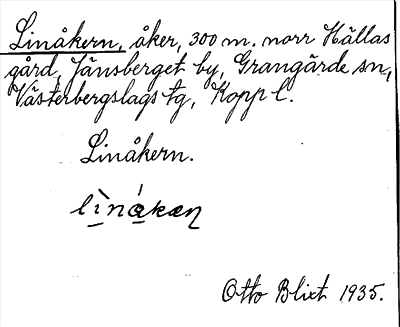 Linåkern, åker, 300 m. norr Hällas
gård, Jänsberget by, Grangärde sn,
Västerbergslags tg, Kopp l.
Linåkern.
Otto Blixt 1935.